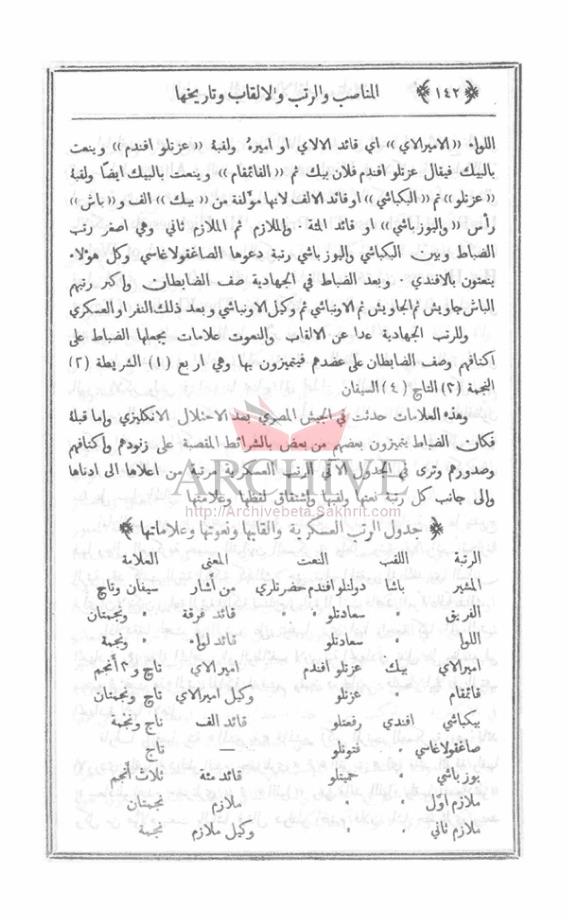 ﴿ ١٤٢ ﴾ المناصب والرتب والالقاب وتاريخها
اللواء «الاميرالاي» اي قائد الالاي او اميرهُ ولقبهُ «عزتلو افندم» وينعت
بالبيك فيقال عزتلو افندم فلان بيك ثم «القائمقام» وينعت بالبيك ايضًا ولقبهُ
«عزتلو» ثم «البكباشي» او قائد الالف لانها مؤلفة من «بيك» الف و «باش»
رأس «واليوزباشي» او قائد المئة . والملازم ثم الملازم ثاني وهي اصغر رتب
الضباط وبين البكباشي واليوزباشي رتبة دعوها الصاغقولاغاسي وكل هؤلاء
ينعتون بالافندي . وبعد الضباط في الجهادية صف الضابطان واكبر رتبهم
الباش جاويش ثم الجاويش ثم الاونباشي ثم وكيل الاونباشي وبعد ذلك النفر او العسكري
وللرتب الجهادية عدا عن الالقاب والنعوت علامات يجعلها الضباط على
اكتافهم وصف الضابطان على عضدهم فيتميزون بها وهي اربع (١) الشريطة (٢)
النجمة (٣) التاج (٤) السيفان
وهذه العلامات حدثت في الجيش المصري بعد الاحتلال الانكليزي واما قبلهُ
فكان الضباط يتميزون بعضهم من بعض بالشرائط المقصبة على زنودهم واكتافهم
وصدورهم وترى في الجدول الاتي الرتب العسكرية مرتبة من اعلاها الى ادناها
والى جانب كل رتبة نعتها ولقبها واشتقاق لفظها وعلامتها
ARCHIVE
http://Archivebeta.Sakhrit.com
﴿ جدول الرتب العسكرية والقابها ونعوتها وعلاماتها ﴾
الرتبة اللقب النعت المعنى العلامة
المشير باشا دولتلو افندم حضرتلري من أشار سيفان وتاج
الفريق " سعادتلو " قائد فرقة " ونجمتان
اللوا " سعادتلو " قائد لواء " ونجمة
اميرالاي بيك عزتلو افندم اميرالاي تاج و٣ أنجم
قائمقام " عزتلو وكيل اميرالاي تاج ونجمتان
بيكباشي افندي رفعتلو قائد الف تاج ونجمة
صاغقولاغاسي " فتوتلو — تاج
يوزباشي " حميتلو قائد مئة ثلاث انجم
ملازم اول " " ملازم نجمتان
ملازم ثاني " " وكيل ملازم نجمة